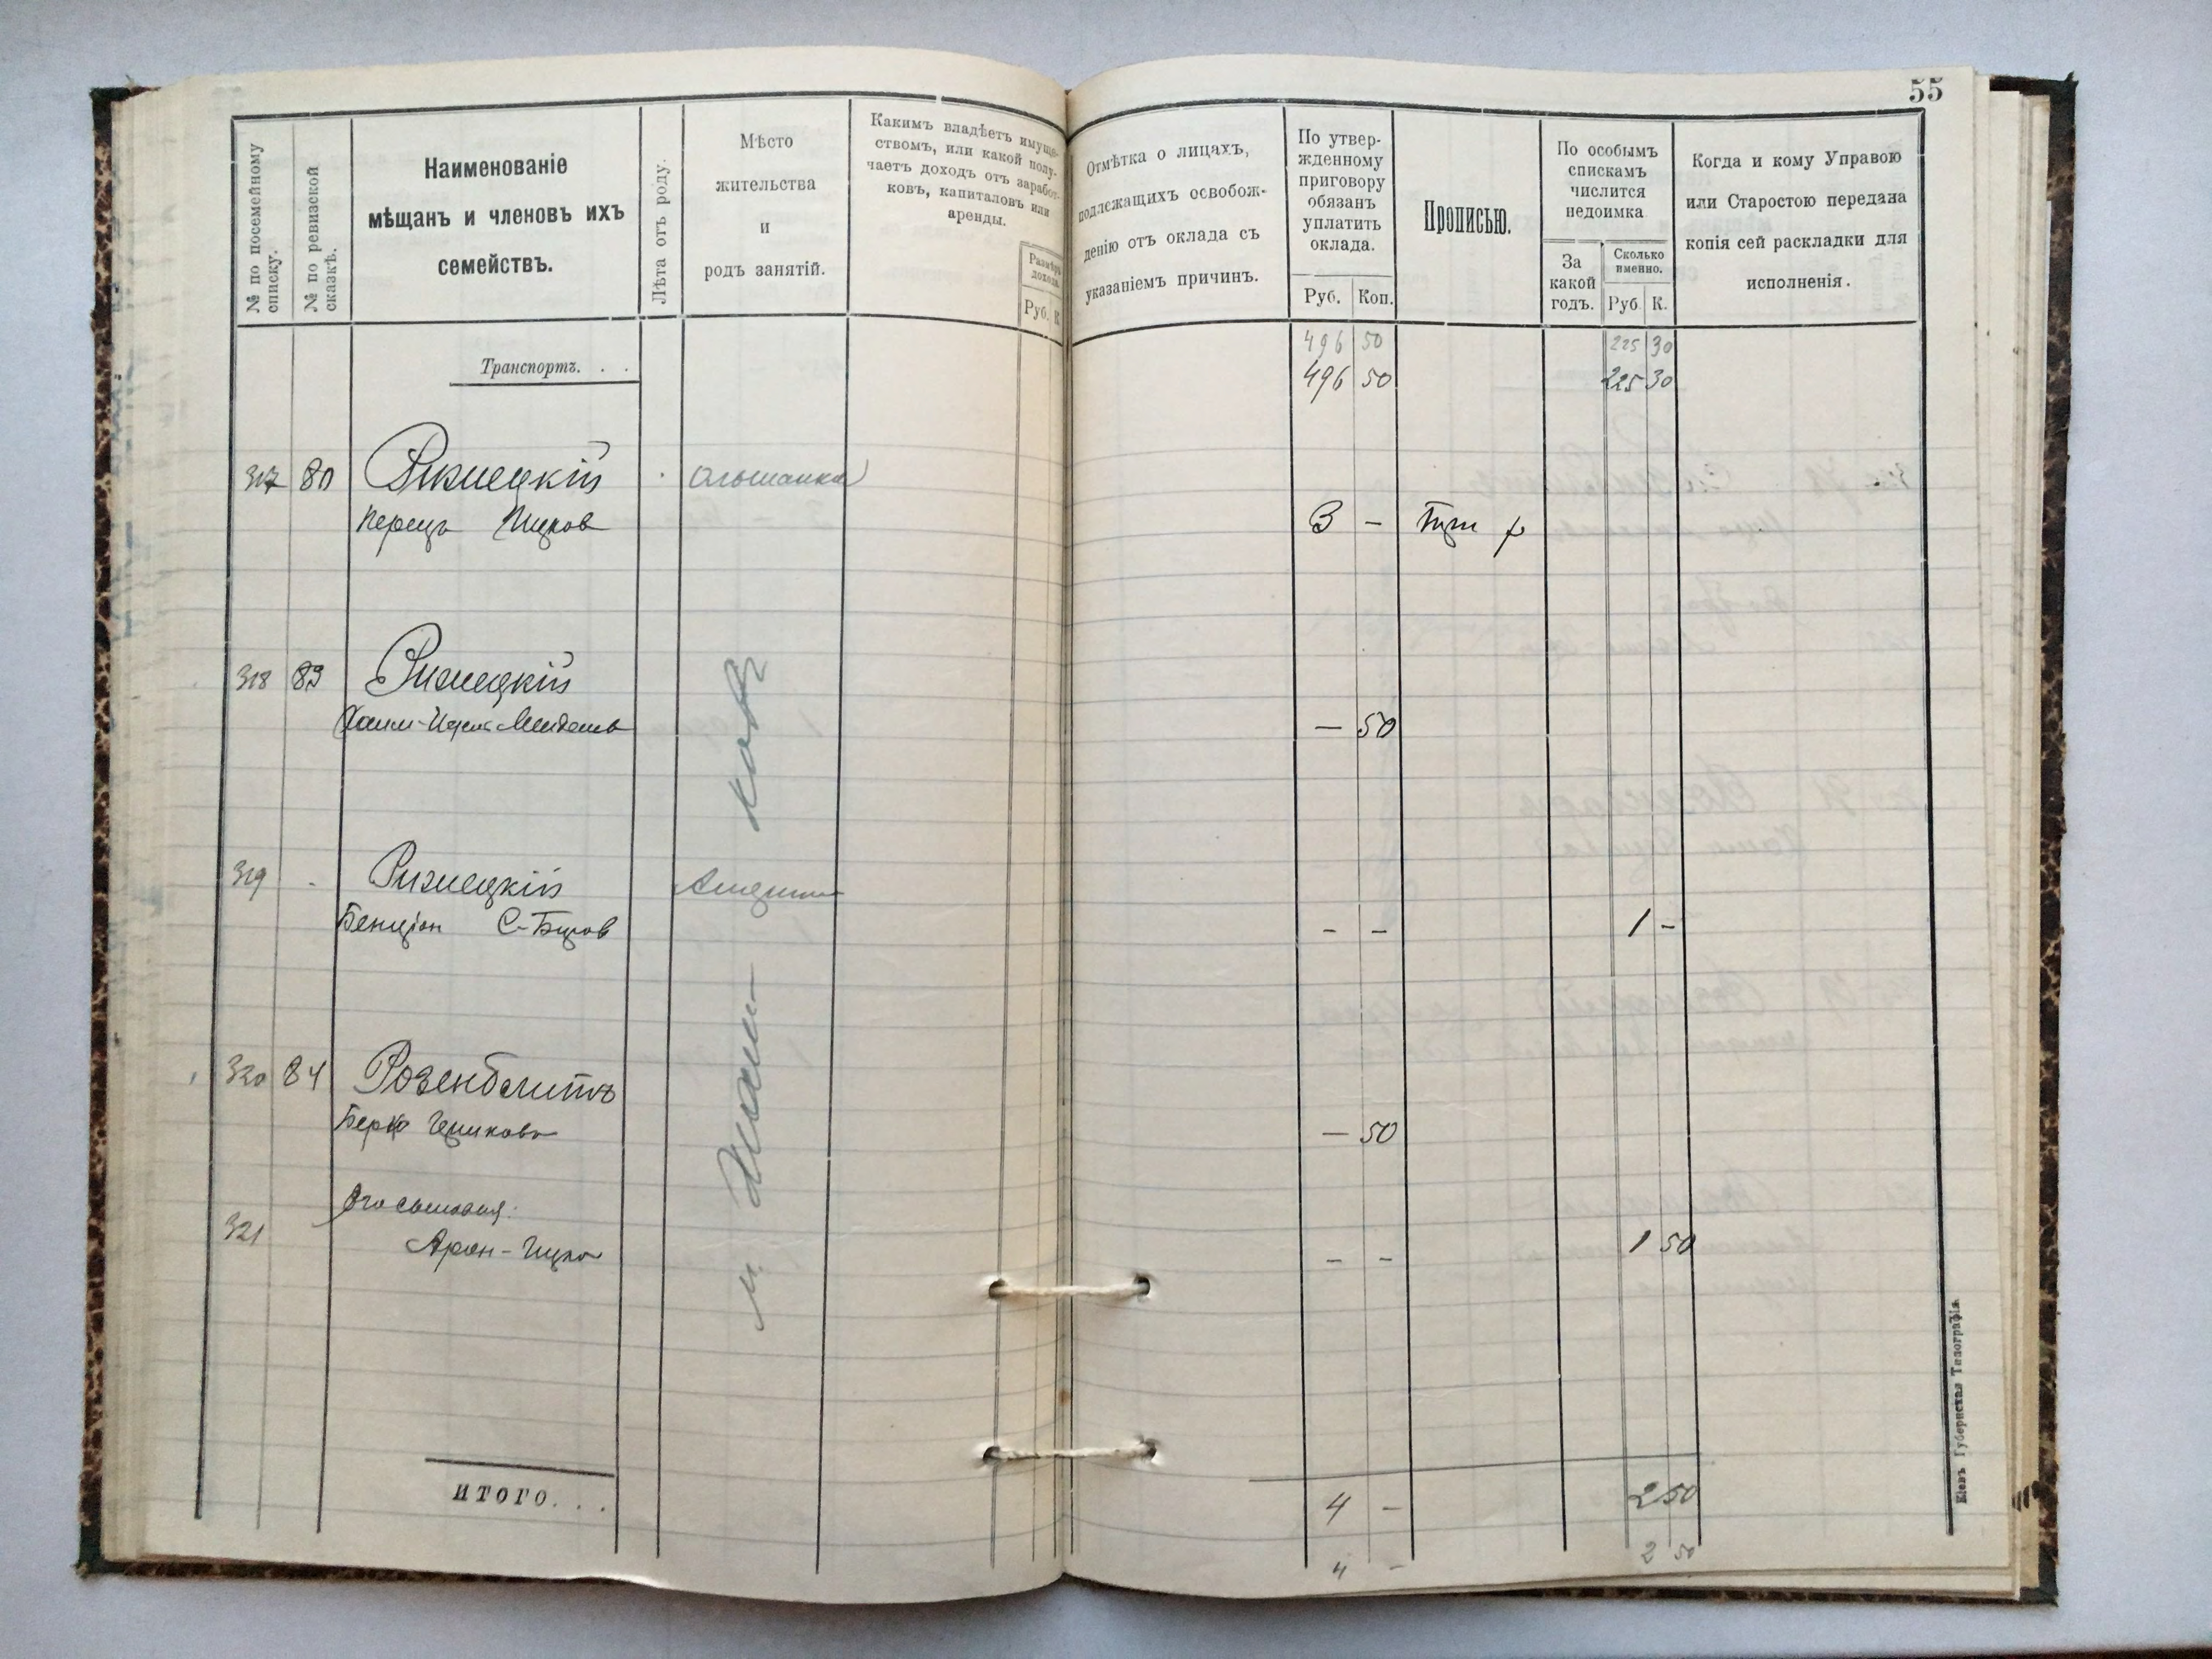 55
№ по посемейному списку.
№ по ревизской сказкѣ.
Наименованіе
мѣщанъ и членовъ ихъ
семействъ.
Лѣта отъ роду.
Мѣсто
жительства
и
родъ занятій.
Какимъ владѣетъ имуще-
ствомъ, или какой полу-
чаетъ доходъ отъ заработ-
ковъ, капиталовъ или
аренды.
Размѣръ дохода.
Руб. К.
Отмѣтка о лицахъ,
подлежащихъ освобож-
денію отъ оклада съ
указаніемъ причинъ.
По утвер-
жденному
приговору
обязанъ
уплатить
оклада.
Руб. Коп.
Прописью.
По особымъ
спискамъ
числится
недоимка
За
какой
годъ.
Сколько
именно.
Руб К.
Когда и кому Управою
или Старостою передана
копія сей раскладки для
исполненія.
496 50 225 30
Транспортъ. . .
496 50 225 30
317 80 Ризнецкій Ольшанка
Перецъ Ицков 3 - Три р
318 83 Ризнецкій
Хаим-Ицко - 50
319 - Ризнецкій
Бенціон С-Беров - - 1 -
320 84 Розенблитъ
Берко Ициков - 50
Его сыновья:
321 Арон-Ицко - - 1 50
ИТОГО. . .
4 - 2 50
4 - 2 50
Кіевъ Губернская Типографія.